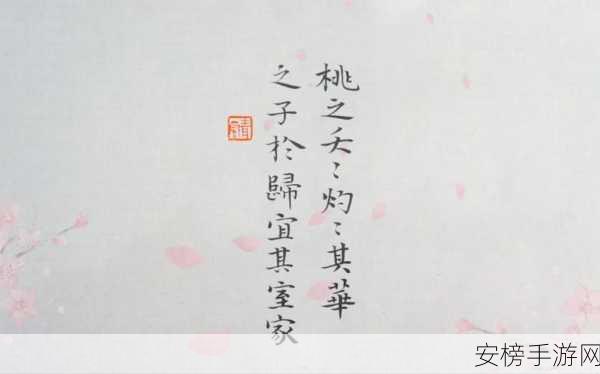 桃之夭〻灼〻其華
之子於歸宜其室家
安榜手游网